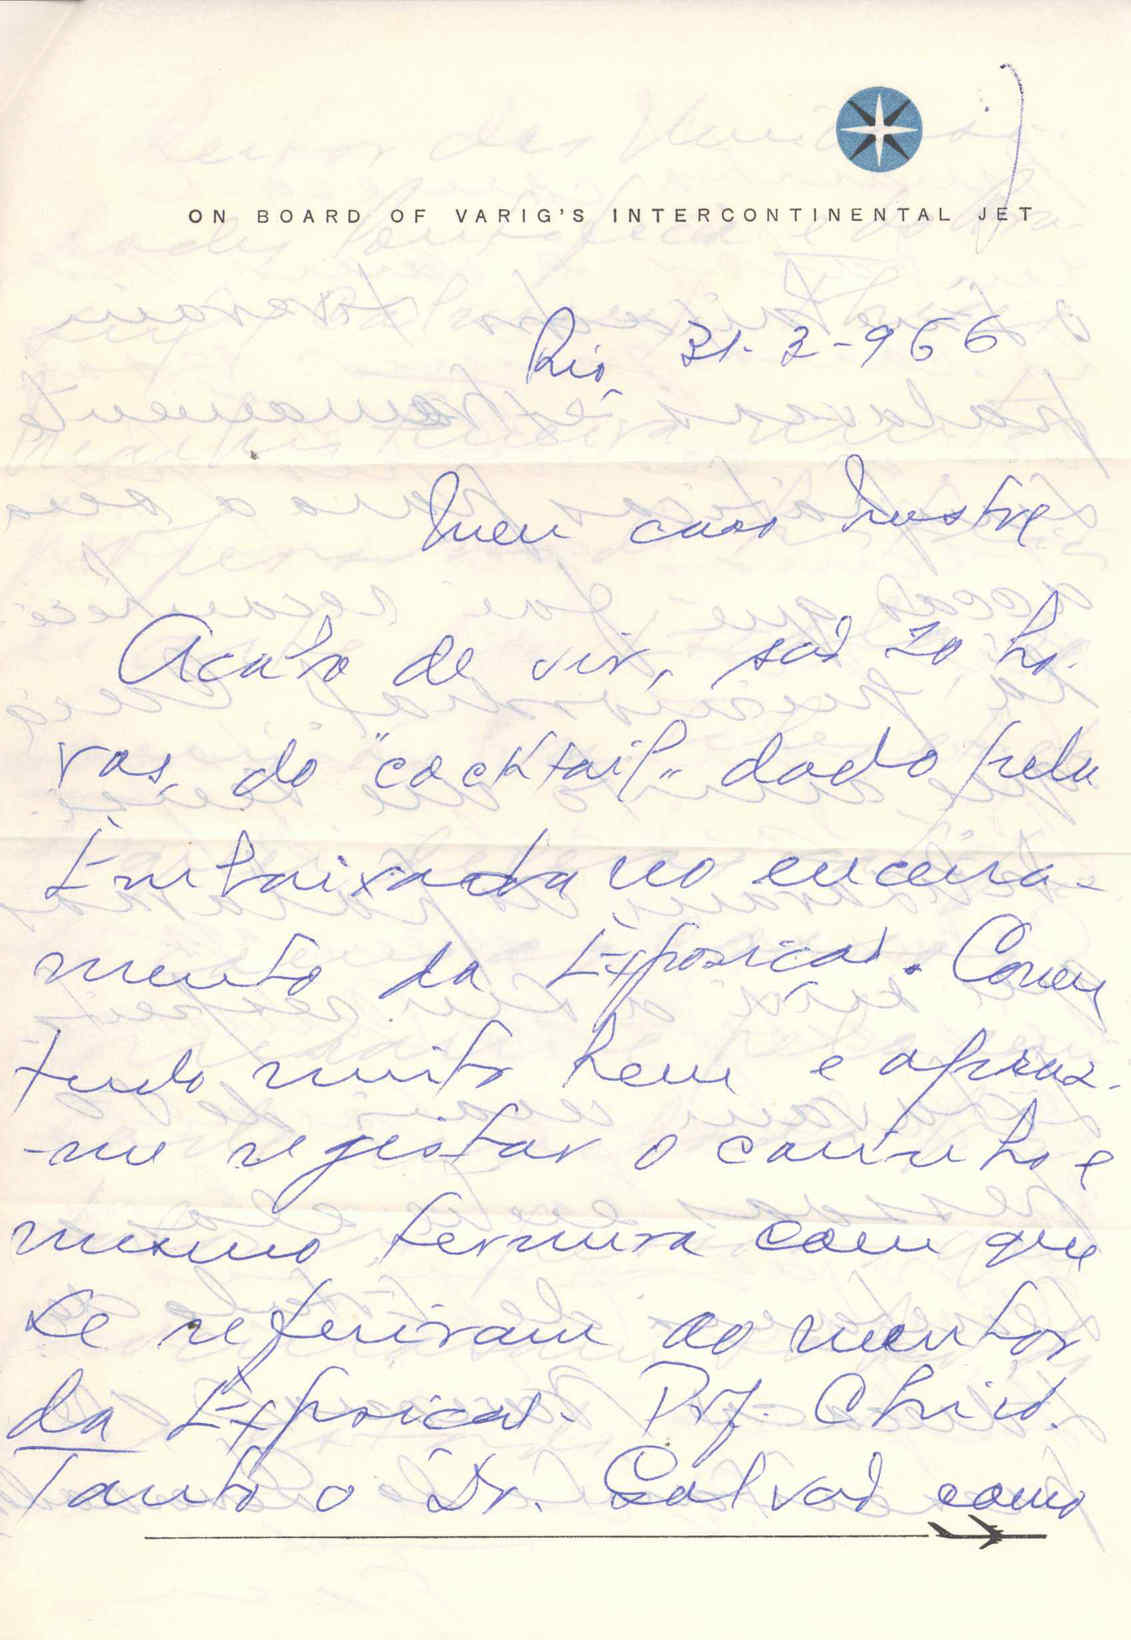 ON BOARD OF VARIG'S INTERCONTINENTAL JET
Rio, 31-3-966
Meu caro Mestre
Acabo de vir, são 20 ho-
ras, do "cocktail" dado pela
Embaixada no encerra-
mento da Exposição. Correu
tudo muito bem e apraz-
-me registar o carinho e
mesmo ternura com que
se referiram ao mentor
da Exposição. Prof. Chicó.
Tanto o Dr. Galvão como